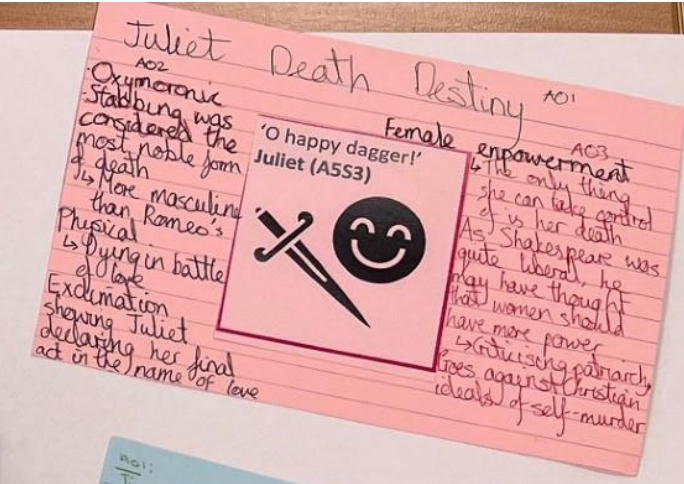 Juliet Death Destiny AO1
AO2
·Oxymoronic
·Stabbing was
considered the
most noble form
of death
↳ More masculine
than Romeo's
Physical
↳ Dying in battle
of love
Exclimation
showing Juliet
declaring her final
act in the name of love
'O happy dagger!'
Juliet (A5S3)
Female empowerment
AO3
↳ The only thing
she can take control
of is her death
As Shakespeare was
quite liberal, he
may have thought
that women should
have more power
↳ Criticising patriarchy
Goes against Christian
ideals of self-murder
AO1: